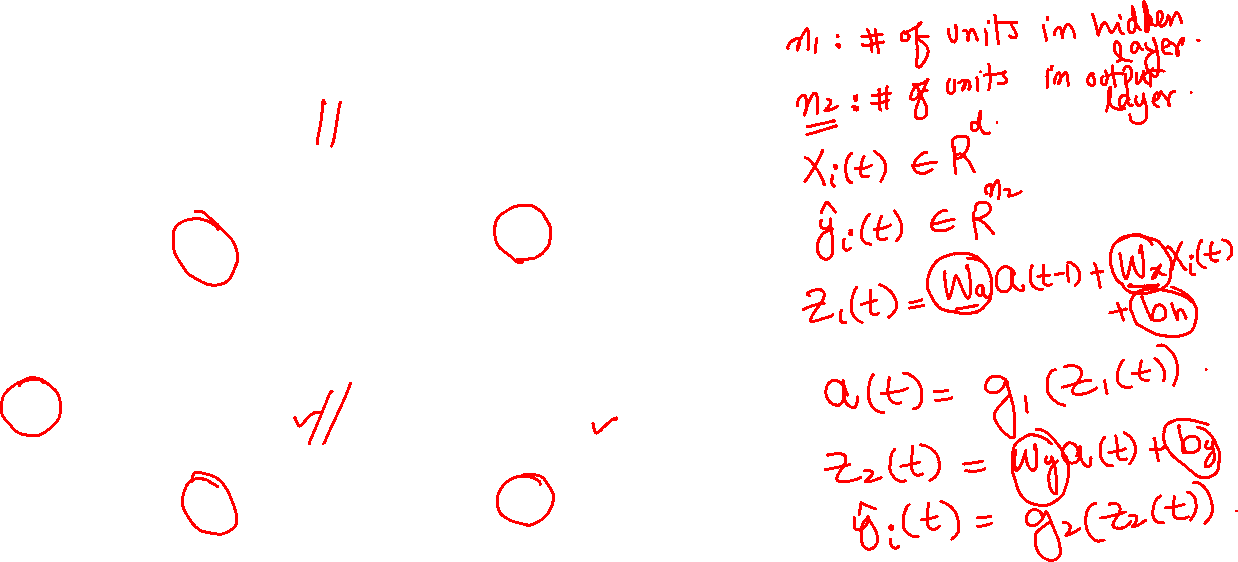 n₁ : # of units in hidden
layer.
n₂ : # of units in output
layer.
xᵢ(t) ∈ R^d.
ŷᵢ(t) ∈ R^n₂
z₁(t) = Wₐ a(t-1) + Wₓ xᵢ(t)
+ bh
a(t) = g₁(z₁(t)).
z₂(t) = Wy a(t) + by
ŷᵢ(t) = g₂(z₂(t)).